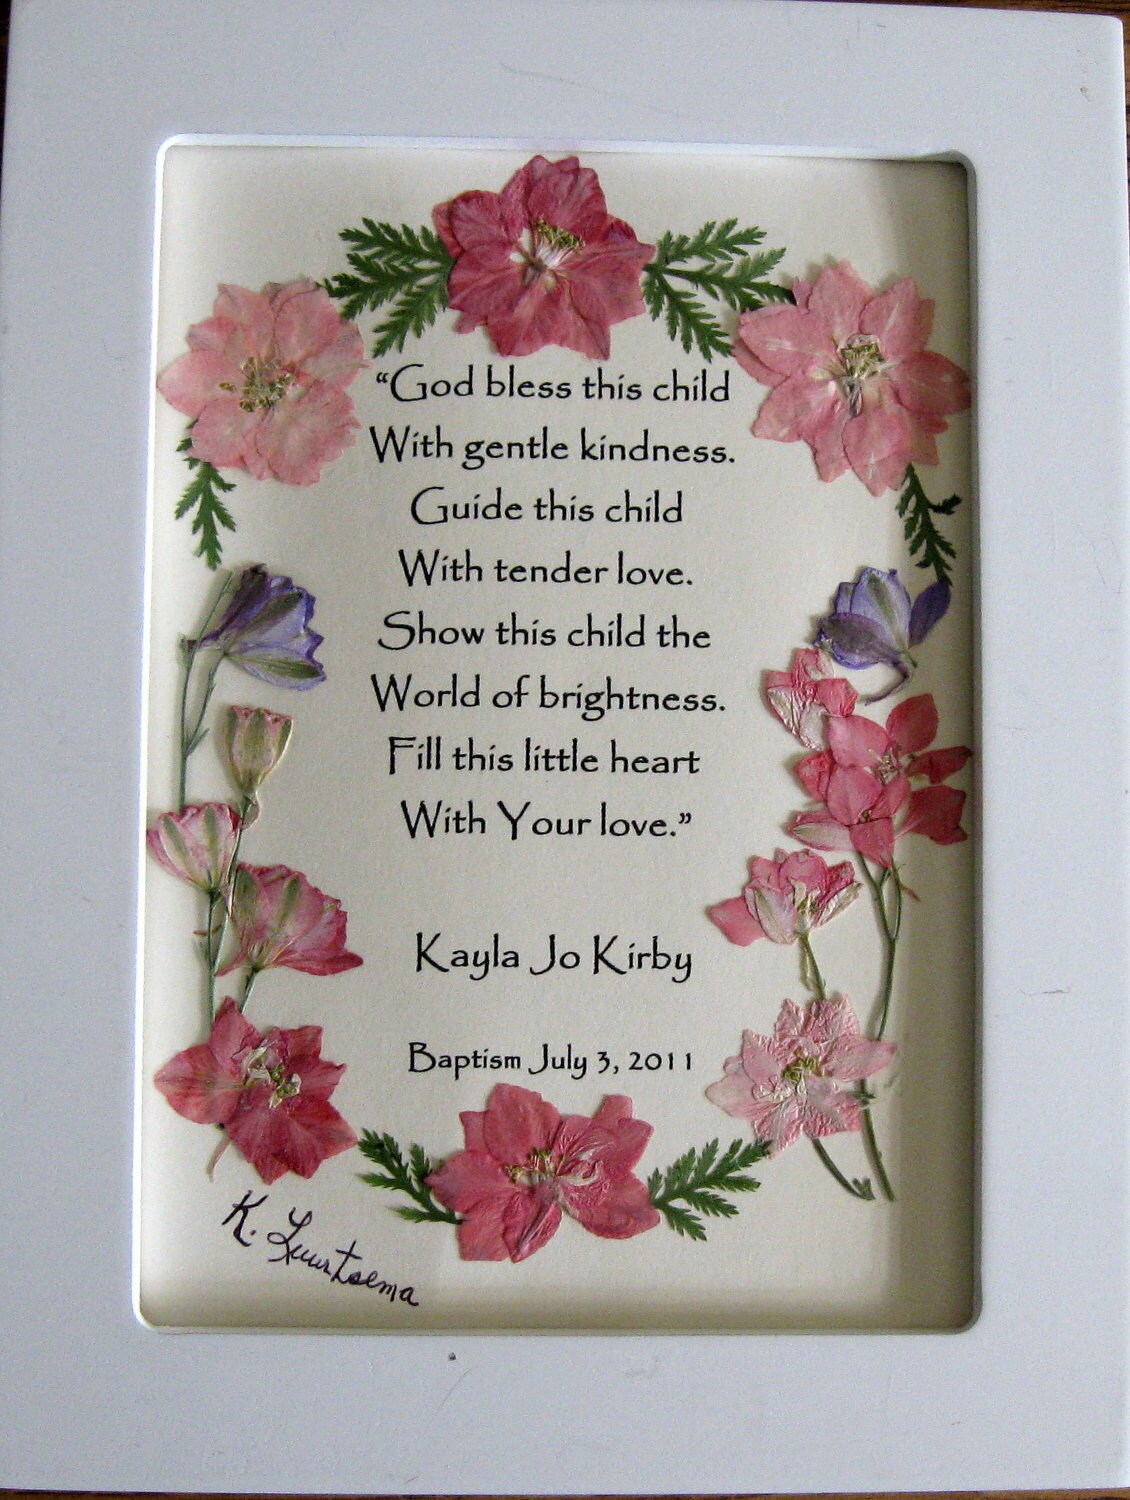 “God bless this child
With gentle kindness.
Guide this child
With tender love.
Show this child the
World of brightness.
Fill this little heart
With Your love.”
Kayla Jo Kirby
Baptism July 3, 2011
K. Luurtsema